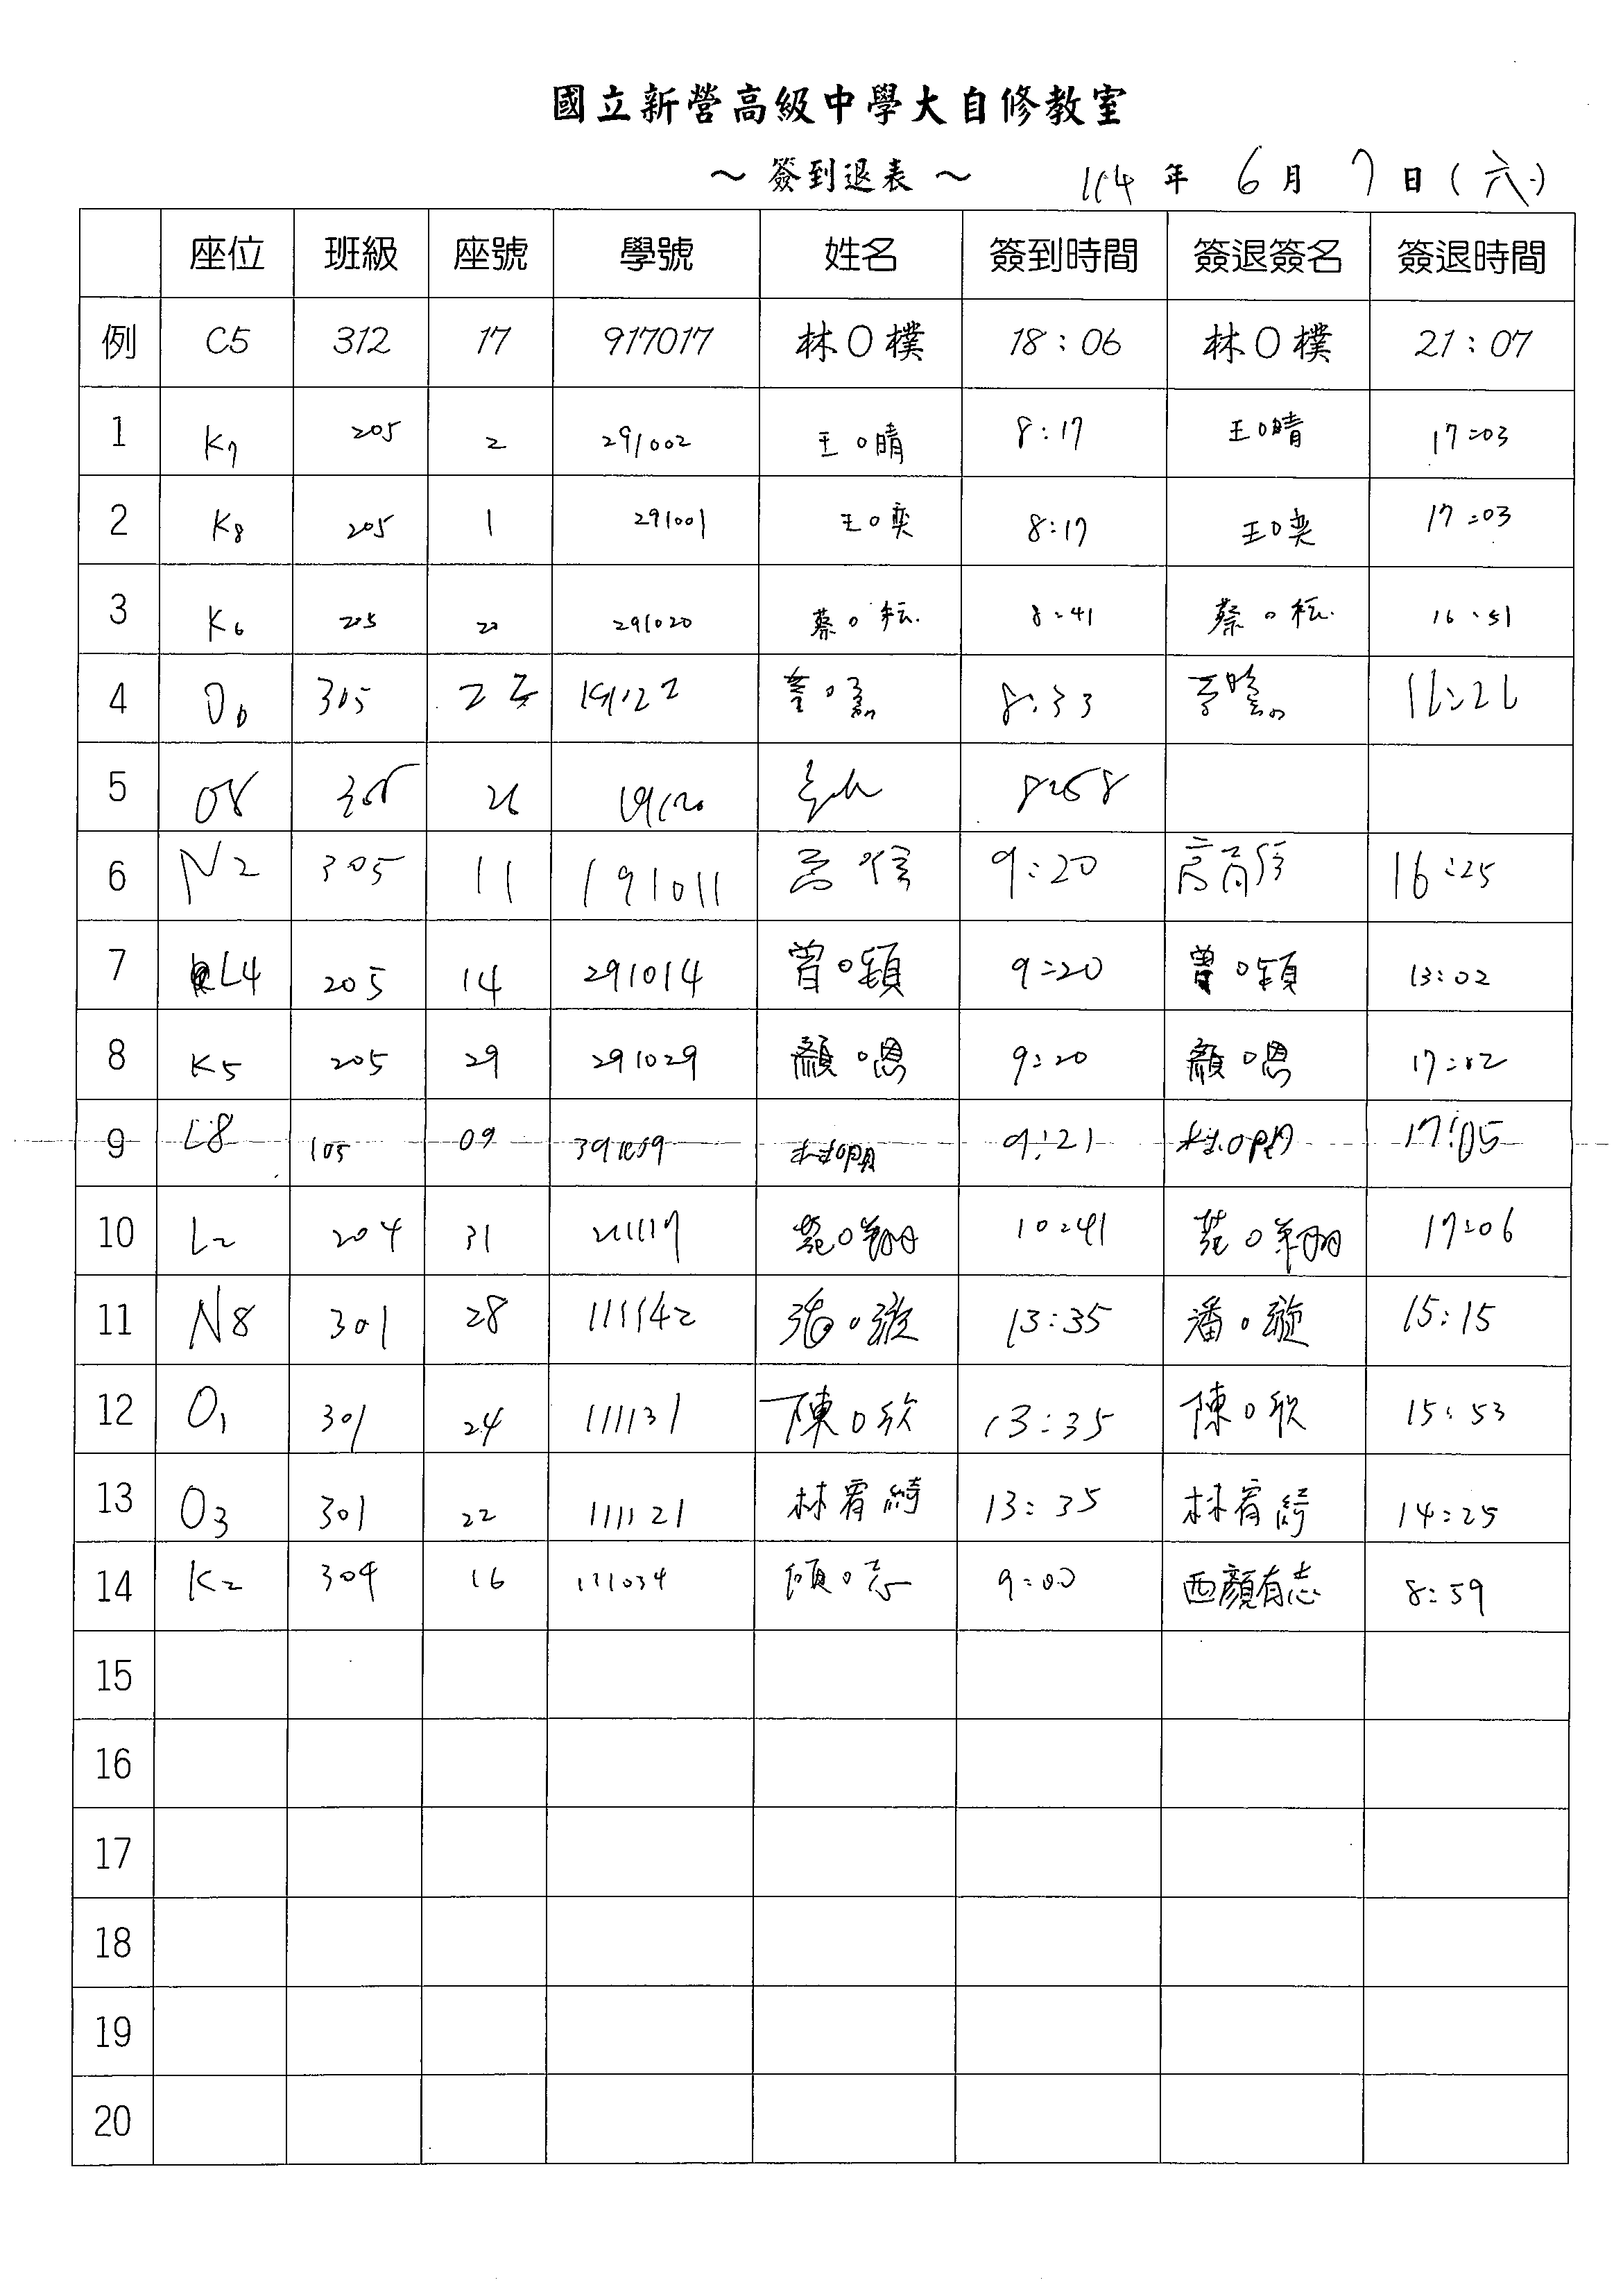 國立新營高級中學大自修教室
～簽到退表～ 114年6月7日(六)
座位 班級 座號 學號 姓名 簽到時間 簽退簽名 簽退時間
例 C5 312 17 917017 林O樸 18:06 林O樸 21:07
1 K7 205 2 291002 王O晴 8:17 王O晴 17:03
2 K8 205 1 291001 王O奕 8:17 王O奕 17:03
3 K6 205 20 291020 蔡O耘 8:41 蔡O耘 16:51
4 305 8:33
5 O8 305
6 N2 305 11 191011 9:20 16:25
7 L4 205 14 291014 曾O穎 9:20 曾O穎 13:02
8 K5 205 29 291029 顏O恩 9:20 顏O恩 17:02
9 L8 105 09 9:21 17:05
10 L2 204 31 211117 范O翔 10:41 范O翔 17:06
11 N8 301 28 111142 13:35 潘O璇 15:15
12 O1 301 24 111131 陳O欣 13:35 陳O欣 15:53
13 O3 301 22 111121 林宥綺 13:35 林宥綺 14:25
14 K2 304 16 111034 O志 9:00 顏有志 8:59
15
16
17
18
19
20